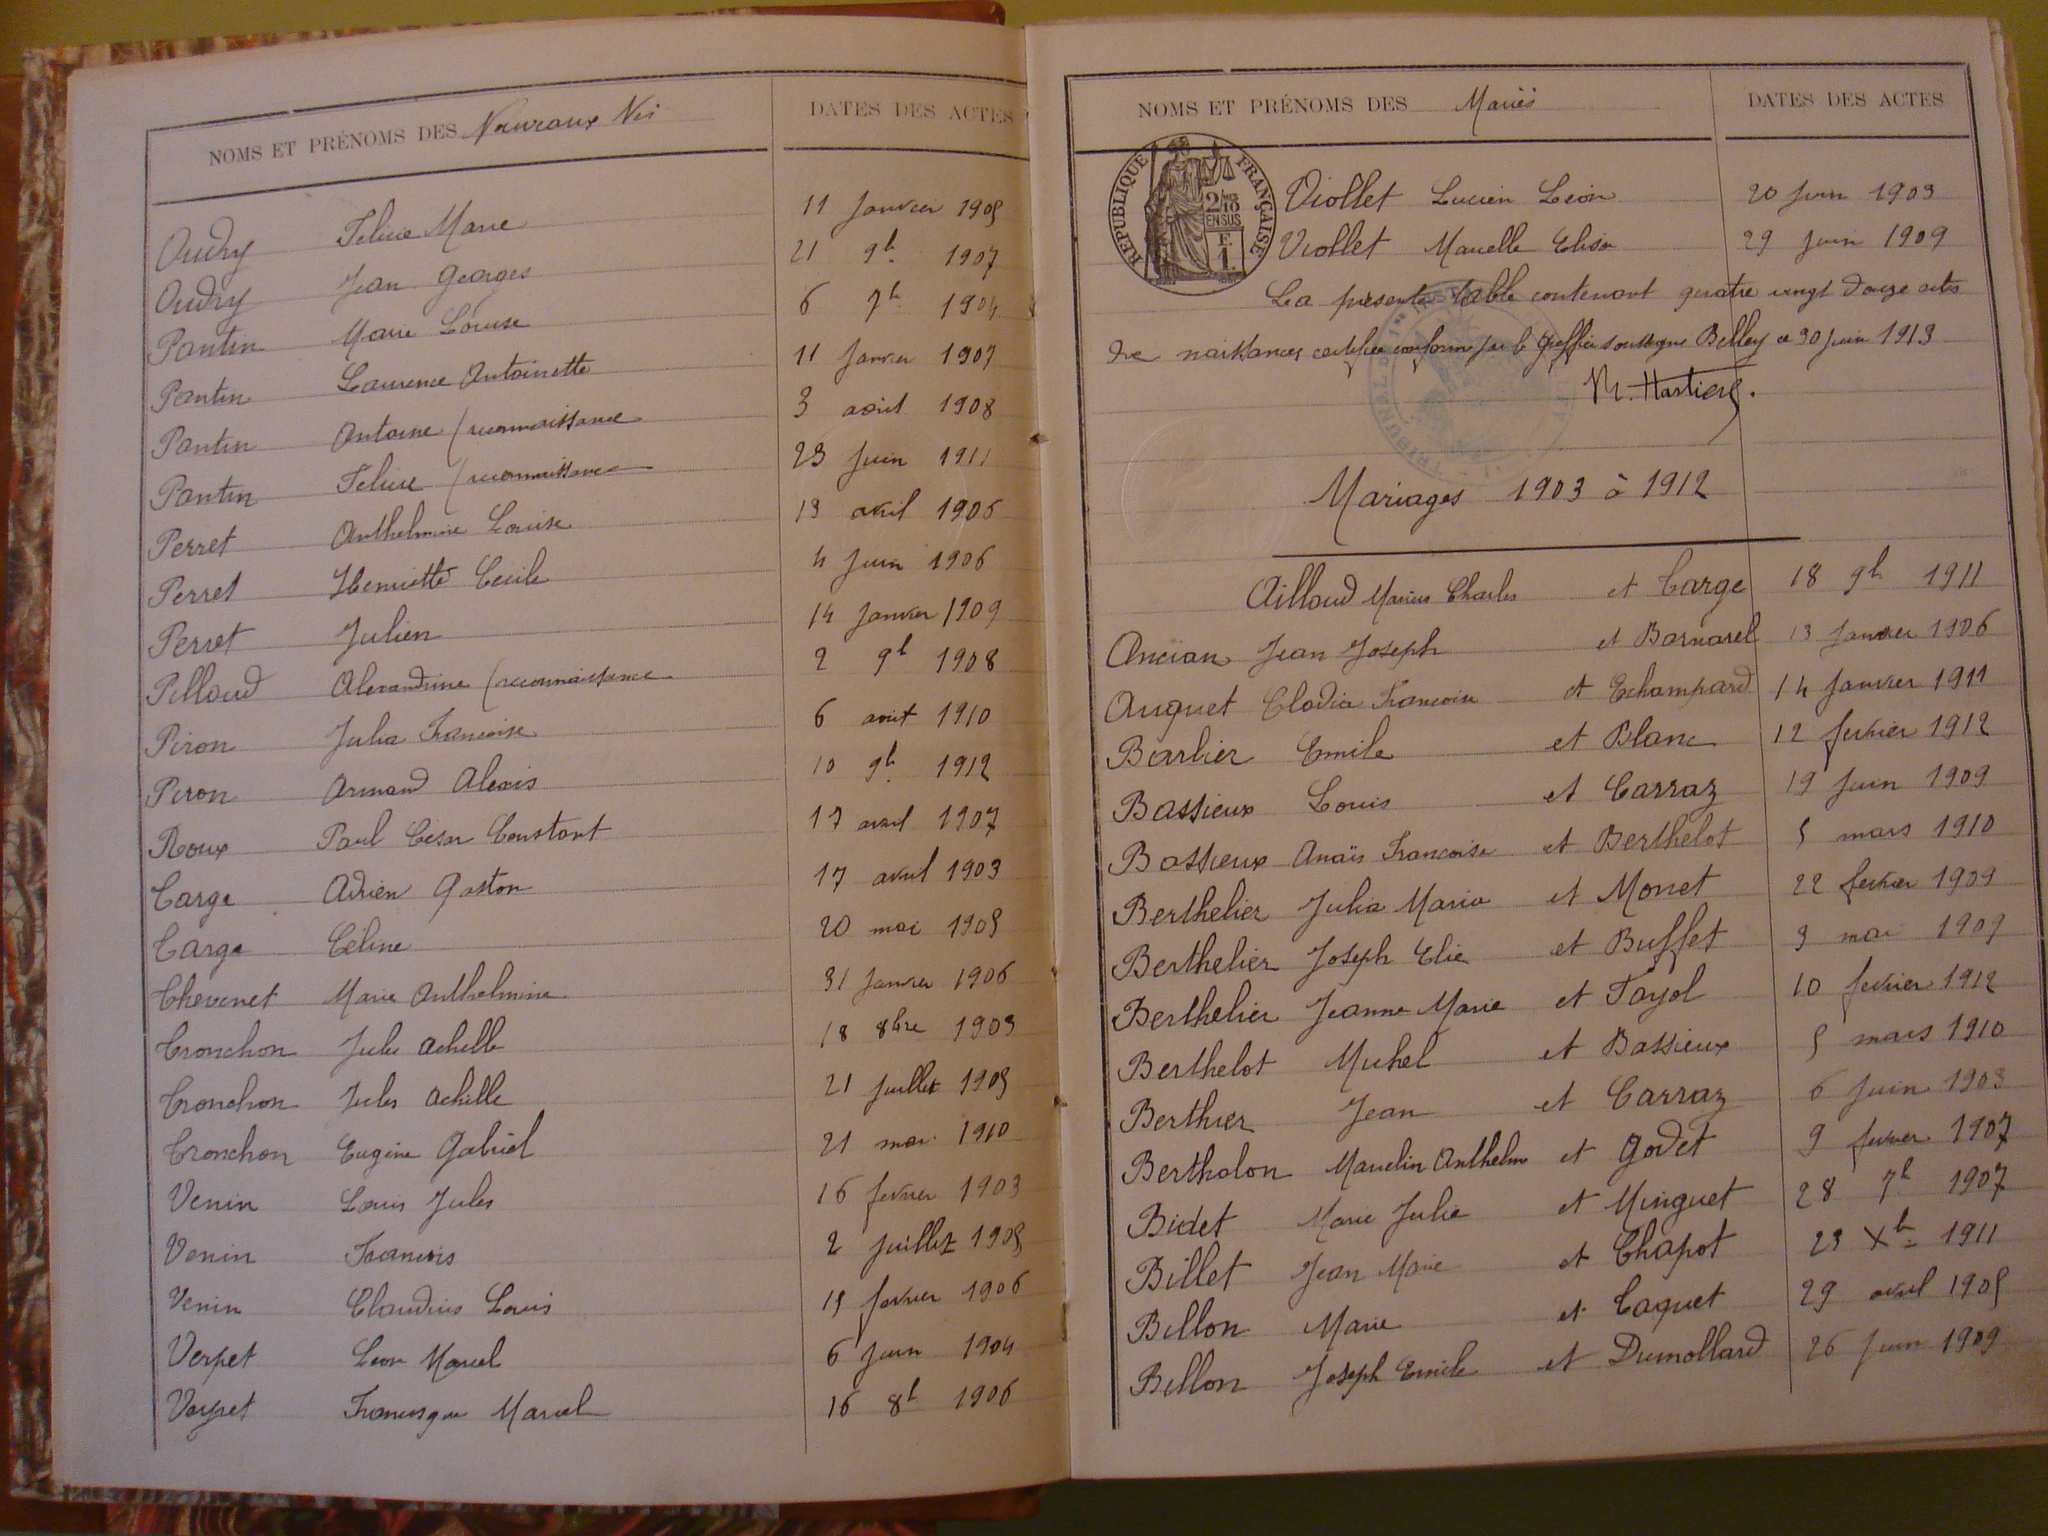 NOMS ET PRÉNOMS DES Nouveaux Nés DATES DES ACTES
Oudry Félicie Marie 11 Janvier 1905
Oudry Jean Georges 21 9b. 1907
Pantin Marie Louise 6 7b 1904
Pantin Laurence Antoinette 11 Janvier 1907
Pantin Antoine (reconnaissance 3 août 1908
Pantin Félicie (reconnaissance 23 Juin 1911
Perret Anthelmine Louise 13 avril 1905
Perret Henriette Cécile 4 Juin 1906
Perret Julien 14 Janvier 1909
Pilloud Alexandrine (reconnaissance 2 9b 1908
Piron Julia Françoise 6 août 1910
Piron Armand Alexis 10 9b. 1912
Roux Paul César Constant 17 avril 1907
Carge Adrien Gaston 17 avril 1903
Carge Céline 20 mai 1905
Thevenet Marie Anthelmine 31 Janvier 1906
Tronchon Jules Achille 18 8bre 1903
Tronchon Jules Achille 21 Juillet 1905
Tronchon Eugène Gabriel 21 mai 1910
Venin Louis Jules 16 février 1903
Venin François 2 Juillet 1905
Venin Claudius Louis 15 février 1906
Verpet Léon Marcel 6 Juin 1904
Verpet Francisque Marcel 16 8b 1906
NOMS ET PRÉNOMS DES Mariés DATES DES ACTES
REPUBLIQUE FRANÇAISE
2/10 EN SUS
Viollet Lucien Léon 20 Juin 1903
Viollet Marcelle Elisa 29 Juin 1909
La présente table contenant quatre vingt douze actes
de naissances certifiée conforme par le Greffier soussigné Belley ce 30 Juin 1913
Mariages 1903 à 1912
Ailloud Marius Charles et Carge 18 9b 1911
Ancian Jean Joseph et Barnarel 13 Janvier 1906
Auguet Clodia Françoise et Echampard 14 Janvier 1911
Barlier Emile et Blanc 12 février 1912
Bassieux Louis et Carraz 19 Juin 1909
Bassieux Anaïs Françoise et Berthelot 5 mars 1910
Berthelier Julia Maria et Monet 22 février 1909
Berthelier Joseph Elie et Buffet 3 mai 1907
Berthelier Jeanne Marie et Fayol 10 février 1912
Berthelot Michel et Bassieux 5 mars 1910
Berthier Jean et Carraz 6 Juin 1903
Bertholon Marcelin Anthelm et Godet 9 février 1907
Bidet Marie Julie et Minguet 28 7b 1907
Billet Jean Marie et Chapot 23 Xb. 1911
Billon Marie et Caquet 29 avril 1905
Billon Joseph Emile et Dumollard 26 Juin 1909